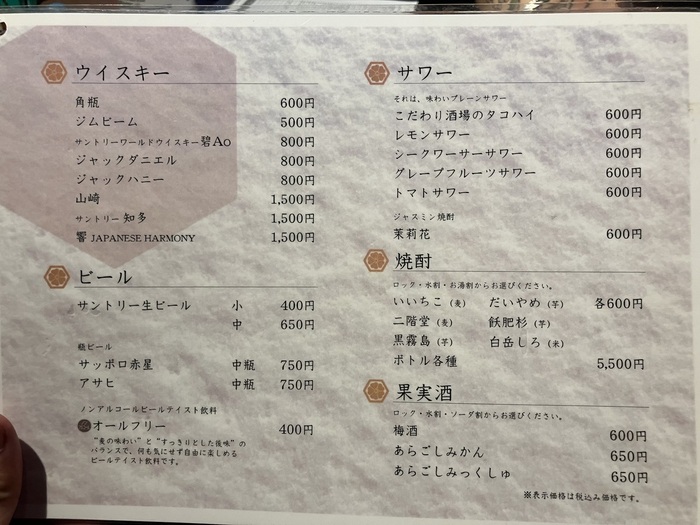 ウイスキー
角瓶 600円
ジムビーム 500円
サントリーワールドウイスキー碧Ao 800円
ジャックダニエル 800円
ジャックハニー 800円
山崎 1,500円
サントリー 知多 1,500円
響 JAPANESE HARMONY 1,500円
ビール
サントリー生ビール 小 400円
中 650円
瓶ビール
サッポロ赤星 中瓶 750円
アサヒ 中瓶 750円
ノンアルコールビールテイスト飲料
オールフリー 400円
“麦の味わい”と“すっきりとした後味”の
バランスで、何も気にせず自由に楽しめる
ビールテイスト飲料です。
サワー
それは、味わいプレーンサワー
こだわり酒場のタコハイ 600円
レモンサワー 600円
シークワーサーサワー 600円
グレープフルーツサワー 600円
トマトサワー 600円
ジャスミン焼酎
茉莉花 600円
焼酎
ロック・水割・お湯割からお選びください。
いいちこ (麦) だいやめ (芋) 各600円
二階堂 (麦) 飫肥杉 (芋)
黒霧島 (芋) 白岳しろ (米)
ボトル各種 5,500円
果実酒
ロック・水割・ソーダ割からお選びください。
梅酒 600円
あらごしみかん 650円
あらごしみっくしゅ 650円
※表示価格は税込み価格です。